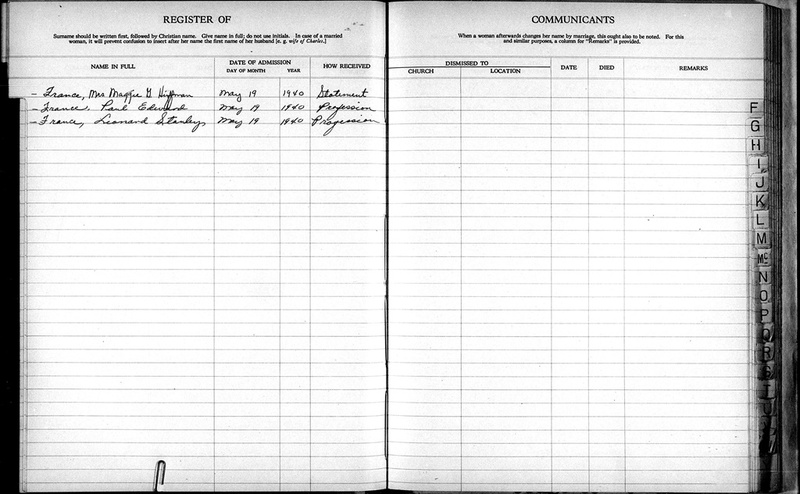 REGISTER OF
Surname should be written first, followed by Christian name. Give name in full; do not use initials. In case of a married
woman, it will prevent confusion to insert after her name the first name of her husband [e. g. wife of Charles.]
NAME IN FULL
DATE OF ADMISSION
DAY OF MONTH YEAR
HOW RECEIVED
– France, Mrs Maggie G. Huffman May 19 1940 Statement
– France, Paul Edward May 19 1940 Profession
– France, Leonard Stanley May 19 1940 Profession
COMMUNICANTS
When a woman afterwards changes her name by marriage, this ought also to be noted. For this
and similar purposes, a column for "Remarks" is provided.
DISMISSED TO
CHURCH LOCATION
DATE
DIED
REMARKS
F
G
H
I
J
K
L
M
Mc
N
O
P
Q
R
S
T
U